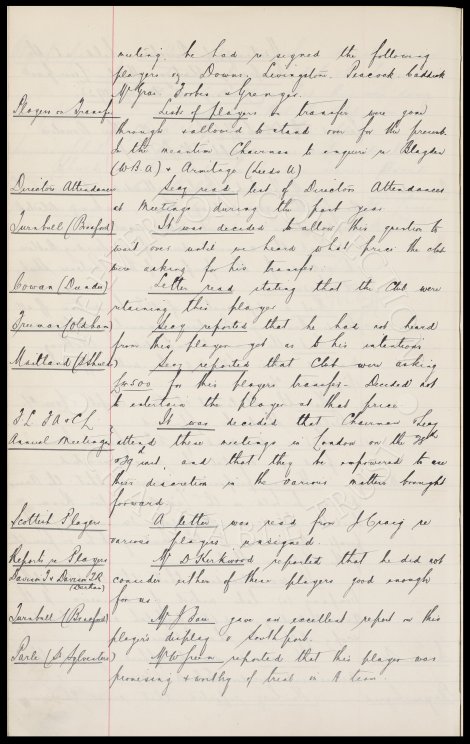 meeting. he had re-signed the following
players eg Downs, Livingstone, Peacock, Caddick
McGrae, Forbes & Grainger.
Players on Transfer List of players on transfer were gone
through & allowed to stand over for the present.
In the meantime Chairman to enquire re Blagden
(W.B.A) & Armitage (Leeds A)
Directors Attendances Secy read list of Directors Attendances
at Meetings during the past year
Turnbull (Bradford) It was decided to allow this question to
wait over until we heard what price the club
were asking for his transfer.
Cowan (Dundee) Letter read stating that the Club were
retaining this player
Freeman (Oldham) Secy reported that he had not heard
from this player yet as to his intentions
Maitland (S Shields) Secy reported that Club were asking
£4500 for this players transfer - Decided not
to entertain the player at that price
F.L. F.A. & C.L It was decided that Chairman & Secy
Annual Meetings attend these meetings in London on the 28th
& 29 inst. and that they be empowered to use
their discretion in the various matters brought
forward.
Scottish Players A letter was read from J Craig re
various players unsigned
Reports re Players Mr D Kirkwood reported that he did not
Davison T & Davison T.R. consider either of these players good enough
(Durham) for us
Turnbull (Bradford) Mr J gave an excellent report on this
players display @ Southport.
Parle (St Sylvesters) Mr W Green reported that this player was
promising & worthy of trial in A team.